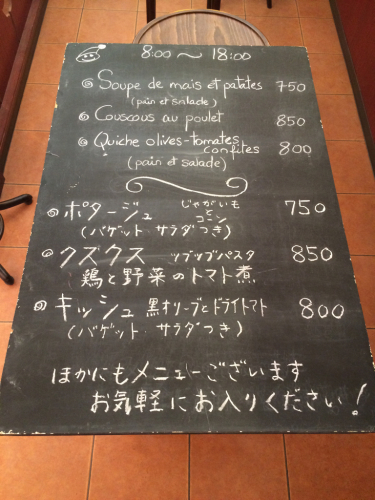 8:00〜18:00
Soupe de mais et patates 750
(pain et salade)
Couscous au poulet 850
Quiche olives-tomates confites 800
(pain et salade)
ポタージュ じゃがいもとコーン 750
(バゲット サラダつき)
クスクス ツブツブパスタ 850
鶏と野菜のトマト煮
キッシュ 黒オリーブとドライトマト 800
(バゲット・サラダつき)
ほかにもメニューございます
お気軽にお入りください!